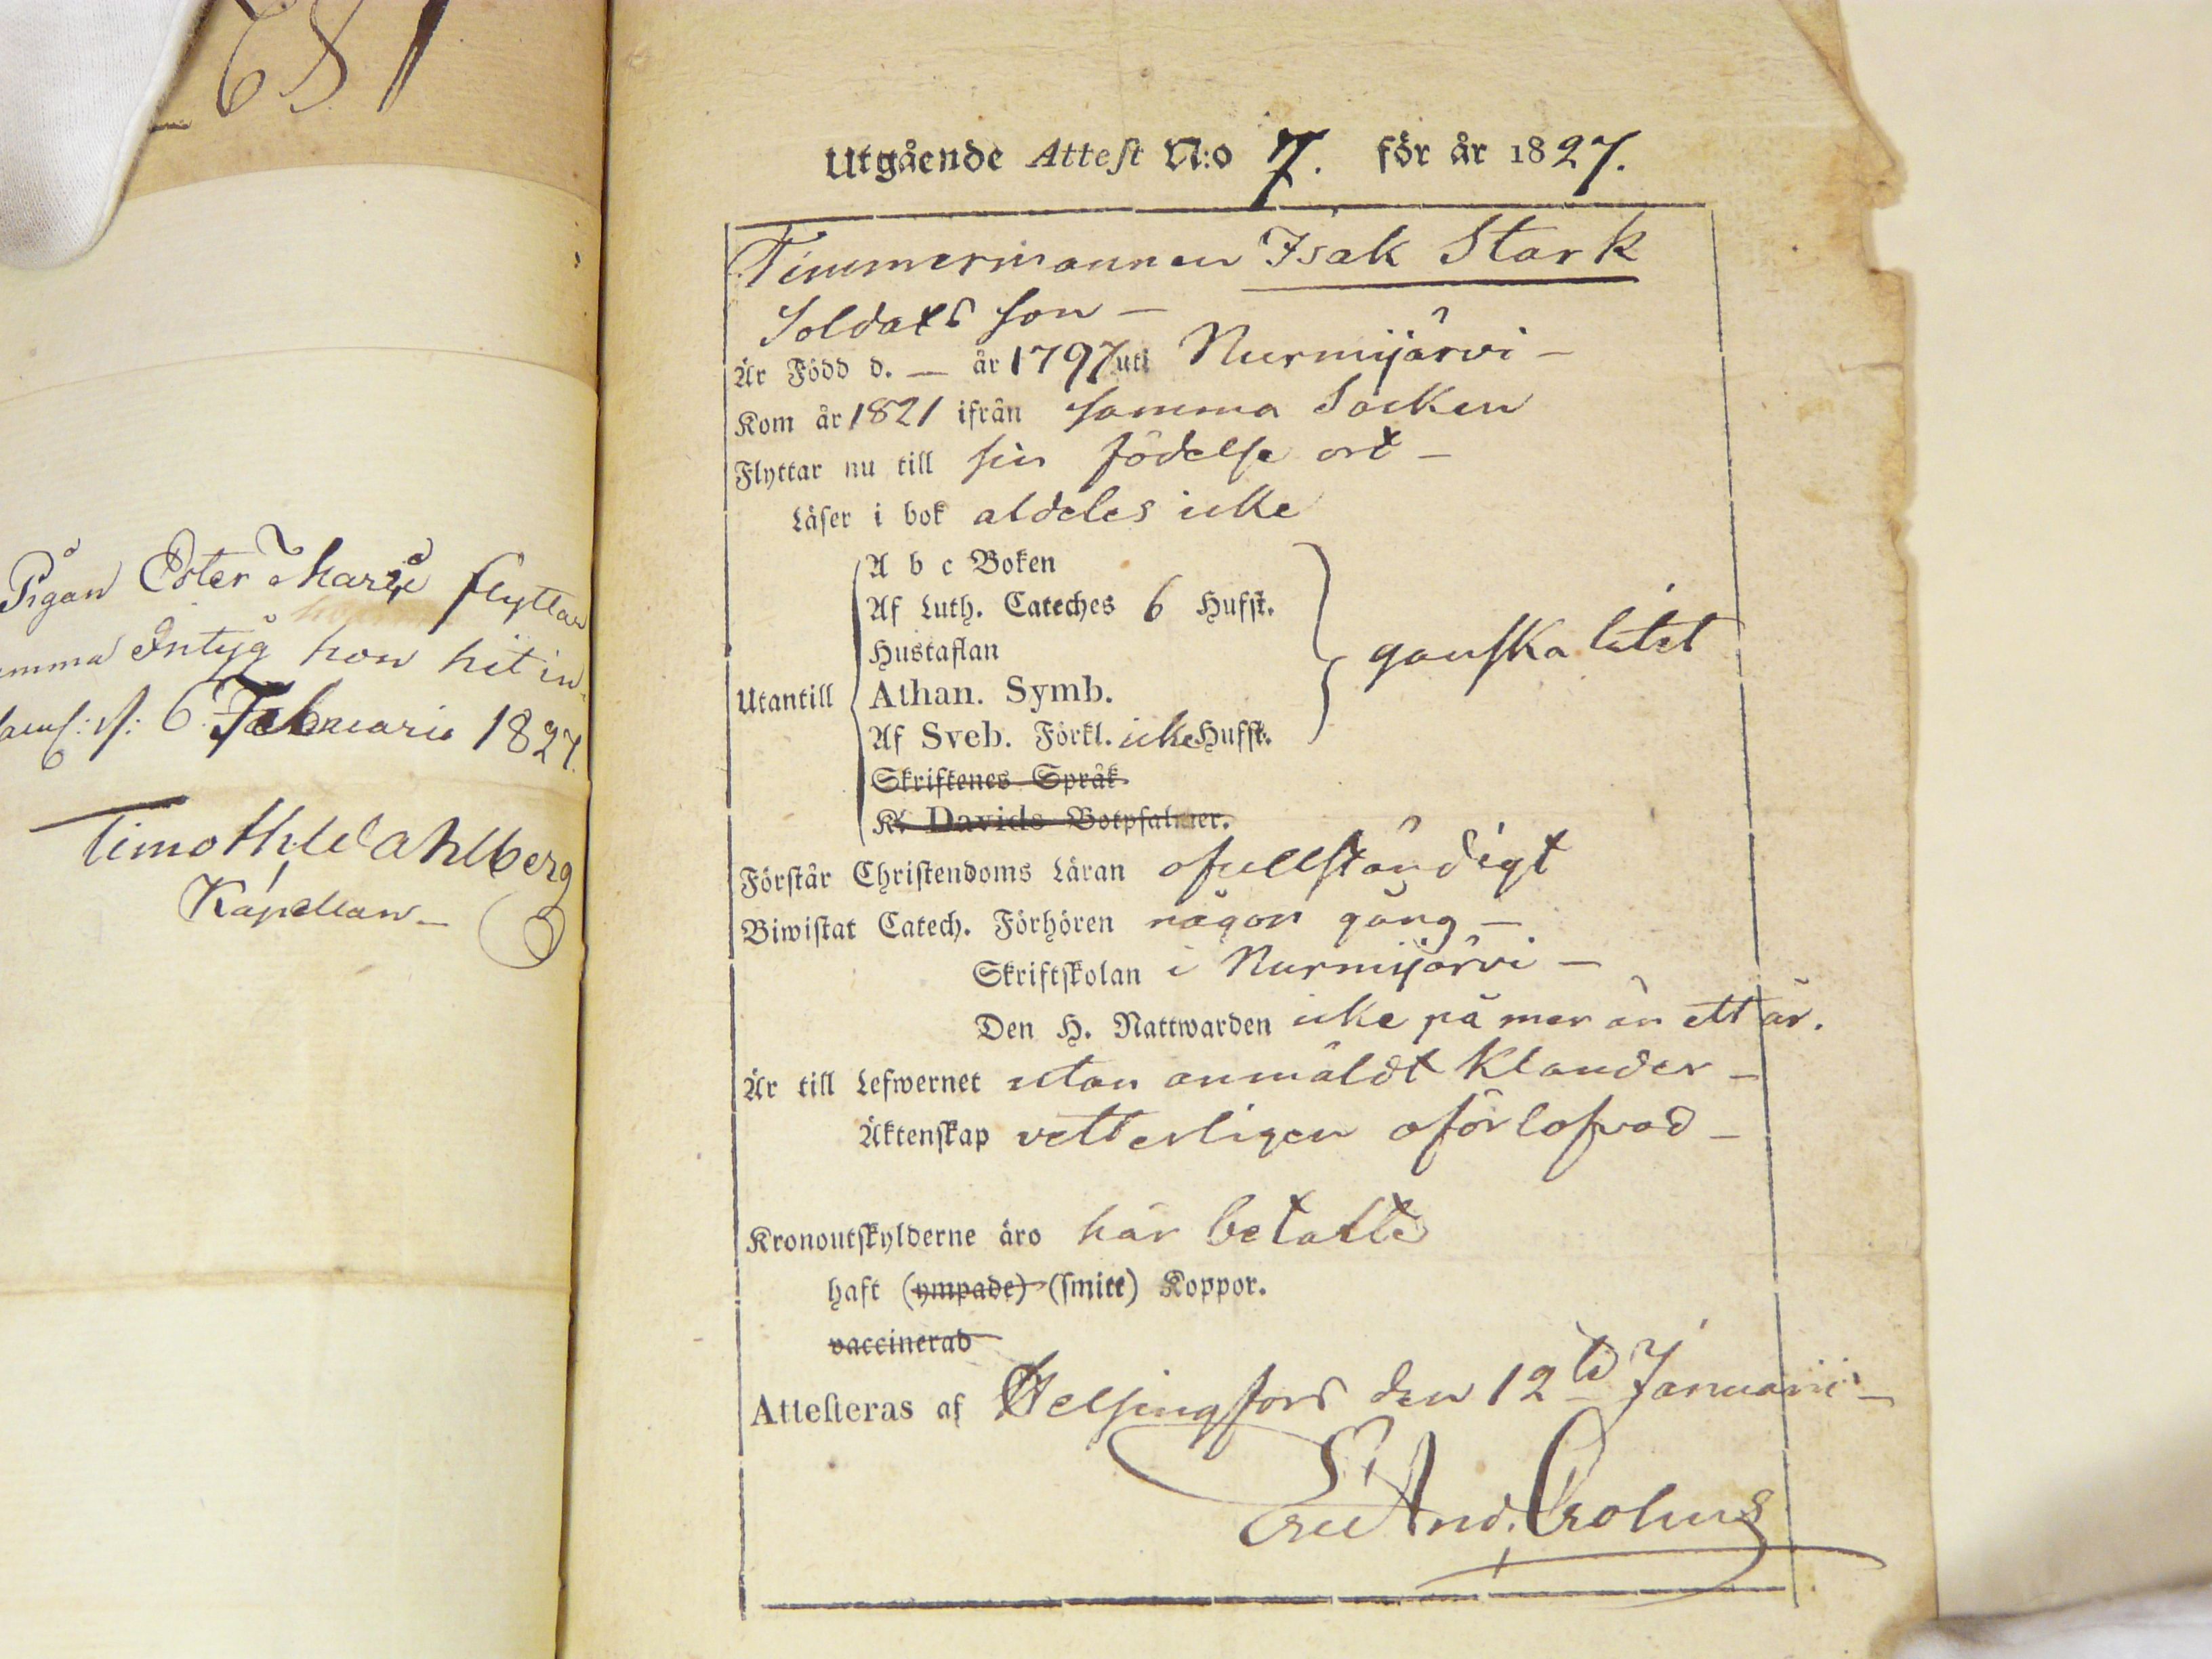 681
Pigan Ester Maria flyttar
Intyg hon hit in
d. 6 Februarii 1827.
Timoth. Wahlberg
Kapellan
Utgående Attest N:o 7. för år 1827.
Timmermannen Isak Stark
Soldats son –
Är Född d. — år 1797 uti Nurmijärvi –
Kom år 1821 ifrån samma Socken
Flyttar nu till sin födelse ort –
Läser i bok aldeles icke
A b c Boken
Af Luth. Cateches 6 Hufst.
Hustaflan
ganska litet
Utantill
Athan. Symb.
Af Sveb. Förkl. icke Hufst.
Skriftenes Språk
K. Davids Botpsalmer.
Förstår Christendoms Läran ofullständigt
Biwistat Catech. Förhören någon gång –
Skriftskolan i Nurmijärvi –
Den H. Nattwarden icke på mer än ett år.
Är till Lefwernet utan anmäldt klander –
Äktenskap vetterligen oförlofvad –
Kronoutskylderne äro här betalte
haft (ympade) (smitt) Koppor.
vaccinerad
Attesteras af Helsingfors den 12te Januarii –
Eric And. Crohns